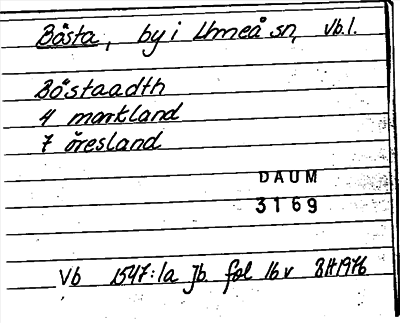 Bösta, by i Umeå sn, Vb.l.
Böstaadth
4 markland
7 öresland
DAUM
3169
Vb 1547:1a Jb. fol 16 v BH1976